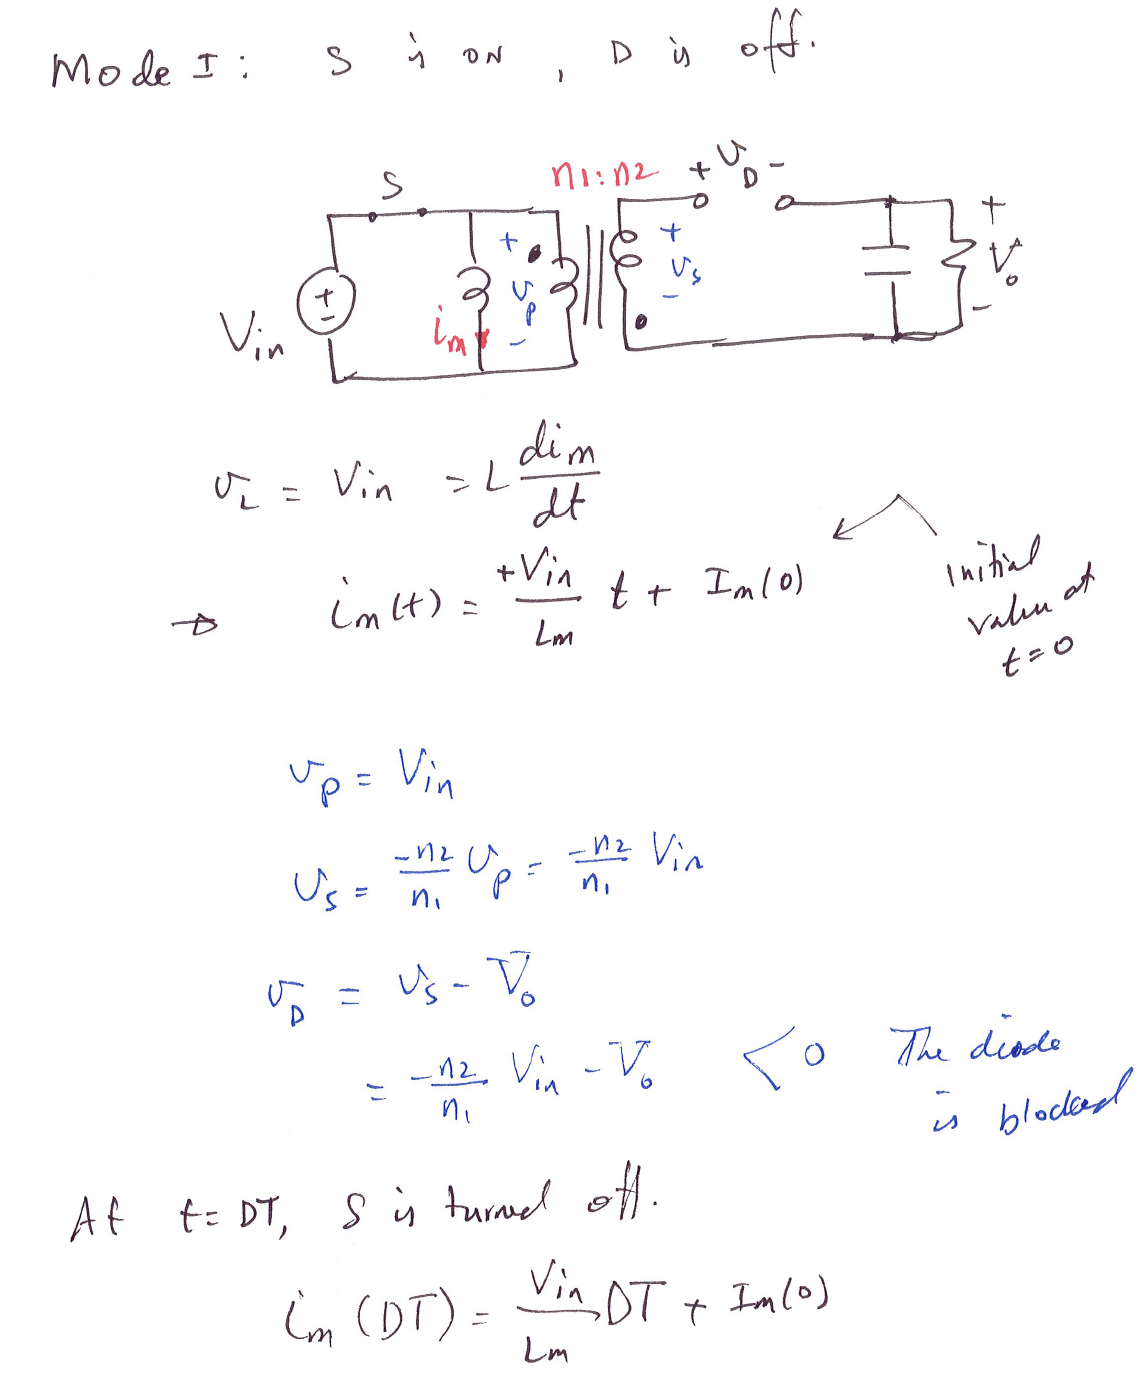 Mode I: S is ON, D is off.
S
n1:n2
+ υD -
+
υp
-
+
υs
-
+
Vo
-
+
-
Vin
im
υL = Vin = L dim/dt
→ im(t) = +Vin/Lm t + Im(0)
initial
value at
t=0
υp = Vin
υs = -n2/n1 υp = -n2/n1 Vin
υD = υs - Vo
= -n2/n1 Vin - Vo < 0 The diode
is blocked
At t= DT, S is turned off.
im (DT) = Vin/Lm DT + Im(0)